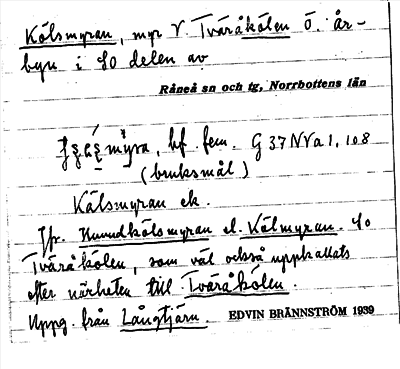 Kölsmyran, myr V. Tväråkölen Ö. år-
byn i SO delen av
Råneå sn och tg, Norrbottens län
myra, bf. fem. G 37 NVa 1, 108
(bruksmål)
Kälsmyran ek.
Jfr. Hundkölsmyran el. Kälmyran. So
Tväråkölen, som väl också uppkallats
efter närheten till Tväråkölen.
Uppg. från Långtjärn. EDVIN BRÄNNSTRÖM 1939